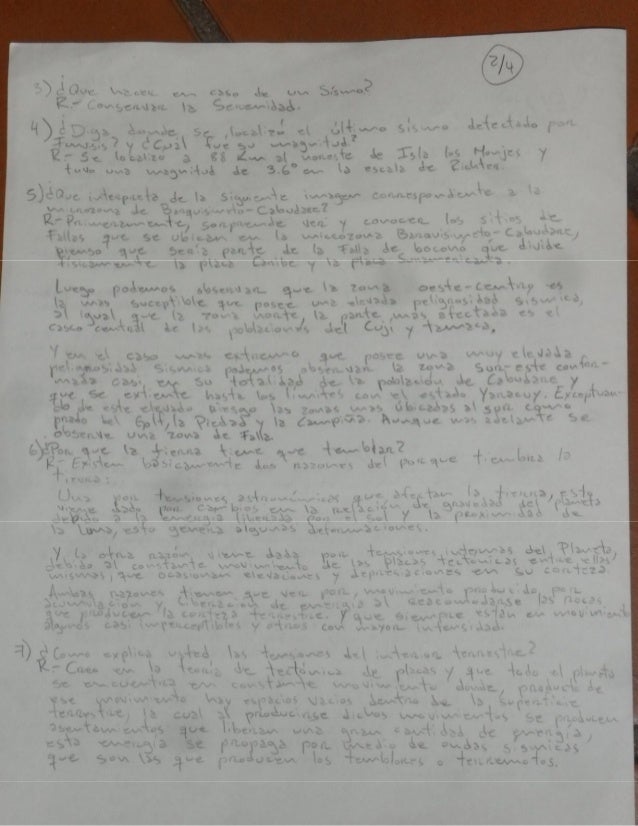 2/4
3) ¿Que hacer en caso de un Sismo?
R.- Conservar la Serenidad.
4) ¿Diga donde se localizó el último sismo detectado por
Funvisis? y ¿Cual fue su magnitud?
R.- Se localizó a 88 Km al noreste de Isla los Monjes y
tuvo una magnitud de 3.6° en la escala de Richter.
5) ¿Que interpreta de la siguiente imagen correspondente a la
microzona de Barquisimeto-Cabudare?
R.- Primeramente, sorprende ver y conocer los sitios de
Fallas que se ubican en la microzona Barquisimeto-Cabudare,
pienso que seria parte de la Falla de boconó que divide
fisicamente la placa Caribe y la placa Suramericana.
Luego podemos observar que la zona oeste-centro es
la mas suceptible que posee una elevada peligrosidad sismica,
al igual que la zona norte, la parte mas afectada es el
casco central de las poblaciones del Cují y tamaca.
Y en el caso mas extremo que posee una muy elevada
peligrosidad Sismica podemos observar la zona Sur-este confor-
mada casi en su totalidad de la poblacion de Cabudare y
que se extiente hasta los limites con el estado Yaracuy. Exceptuan-
do de este elevado riesgo las zonas mas ubicadas al sur como
prado del Golf, la Piedad y la Campiña. Aunque mas adelante se
observe una zona de Falla
6) ¿Por que la tierra tiene que temblar?
R.- Existen básicamente dos razones del porque tiembla la
tierra:
Una por tensiones astronómicas que afectan la tierra, esto
viene dado por cambios en la relación de gravedad del planeta
debido a la energia liberada por el sol y la proximidad de
la luna, esto genera algunas determaciones.
Y la otra razón, viene dada por tensiones internas del Planeta,
debido al constante movimiento de las placas tectonicas entre ellas
mismas, que ocasionan elevaciones y depresiaciones en su corteza.
Ambas razones tienen que ver por, movimiento producido por
acumulación y liberación de energia al reacomodarse las rocas
que producen la corteza terrestre. Y que siempre están en movimiento
algunos casi imperceptibles y otros con mayor intensidad.
7) ¿Como explica usted las tensiones del interior terrestre?
R.- Creo en la teoria de tectónica de placas y que todo el planeta
se encuentra en constante movimiento donde, producto de
ese movimiento hay espacios vacios dentro de la superficie
terrestre, la cual al producirse dichos movimientos se producen
asentamientos que liberan una gran cantidad de energia,
esta energia se propaga por medio de ondas sismicas
que son las que producen los temblores o terremotos.